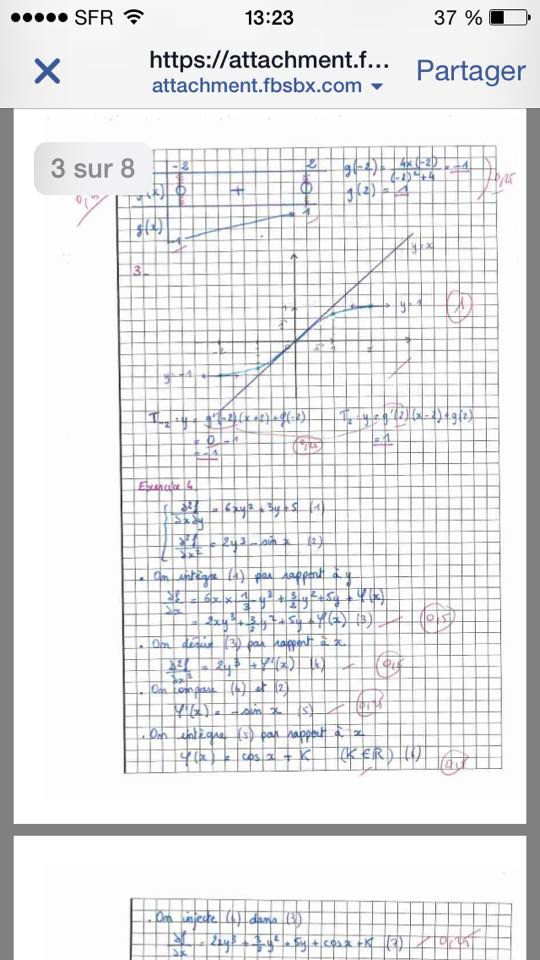 SFR 13:23 37 %
https://attachment.f...
attachment.fbsbx.com
Partager
3 sur 8
-2 2 g(-2) = 4x(-2)/(-2)²+4 = -1
0 + 0 g(2) = 1
0,25
g(x) -1 1
3.
y=x
y=1
1
y=-1
-2
T-2 : y = g'(-2)(x+2)+g(-2) T2 : y = g'(2)(x-2)+g(2)
= 0 - 1 = 1
= -1
Exercice 4
∂²f/∂x∂y = 6xy² + 3y + 5 (1)
∂²f/∂x² = 2y³ - sin x (2)
. On intègre (1) par rapport à y
∂f/∂x = 6x × 1/3 y³ + 3/2 y² + 5y + φ(x)
= 2xy³ + 3/2 y² + 5y + φ(x) (3) 0,5
. On dérive (3) par rapport à x
∂²f/∂x² = 2y³ + φ'(x) (4) 0,5
. On compare (4) et (2)
φ'(x) = -sin x (5) 0,25
. On intègre (5) par rapport à x
φ(x) = cos x + K (K ∈ ℝ) (6)
. On injecte (6) dans (3)
∂f/∂x = 2xy³ + 3/2 y² + 5y + cos x + K (7) 0,25